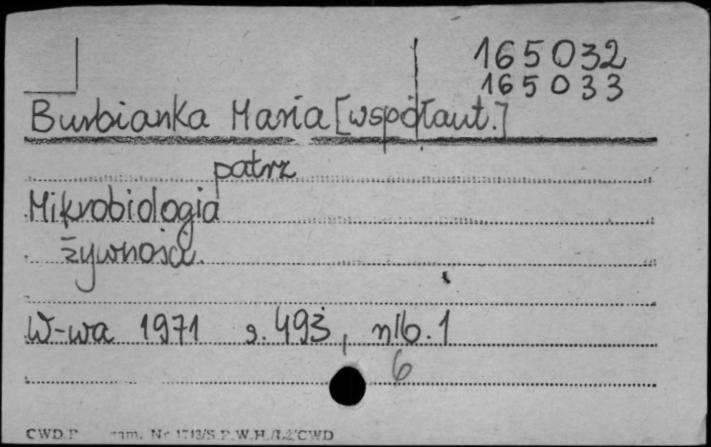 165032
165033
Burbianka Maria [współaut.]
patrz
Mikrobiologia
żywności.
W-wa 1971 s. 493, nlb. 1
6
CWD zam. Nr 1713/S P.W.H./L2/CWD